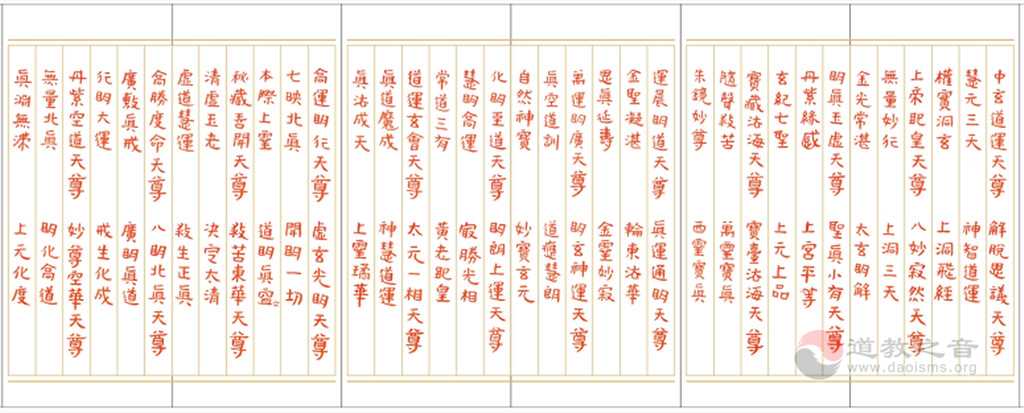 中玄道運天尊 解脫思議天尊
慧元三天 神智道運
權寶洞玄 上洞飛經
上帝昭皇天尊 八妙寂然天尊
無量妙行 上洞三天
金光常湛 太玄明解
明眞玉虛天尊 聖眞小有天尊
丹紫緣感 上宮平等
玄紀七聖 上元上品
寶藏沽海天尊 寶臺沽海天尊
隨聲救苦 萬靈寶眞
朱鏡妙尊 西靈寶眞
運晨明道天尊 眞運通明天尊
金聖凝湛 輪東沽華
思眞延壽 金靈妙寂
萬運明廣天尊 明玄神運天尊
眞空道訓 道應慧朗
自然神寶 妙寶玄元
化明至道天尊 明朗上運天尊
慧明高運 寂勝光相
常道三有 黃老昭皇
道運玄會天尊 太元一相天尊
眞道魔成 神慧道運
眞沽成天 上靈璚華
高運明行天尊 虛玄光明天尊
七映北眞 開明一切
本際上靈 道明眞容
秘藏吾開天尊 救苦東華天尊
清虛玉老 決定太清
虛道慧運 救生正眞
高勝度命天尊 八明北眞天尊
廣敷眞戒 廣明眞道
行明大運 戒生化成
丹紫空道天尊 妙尊空華天尊
無量北眞 明化高道
眞淵無深 上元化度
道教之音
www.daoisms.org